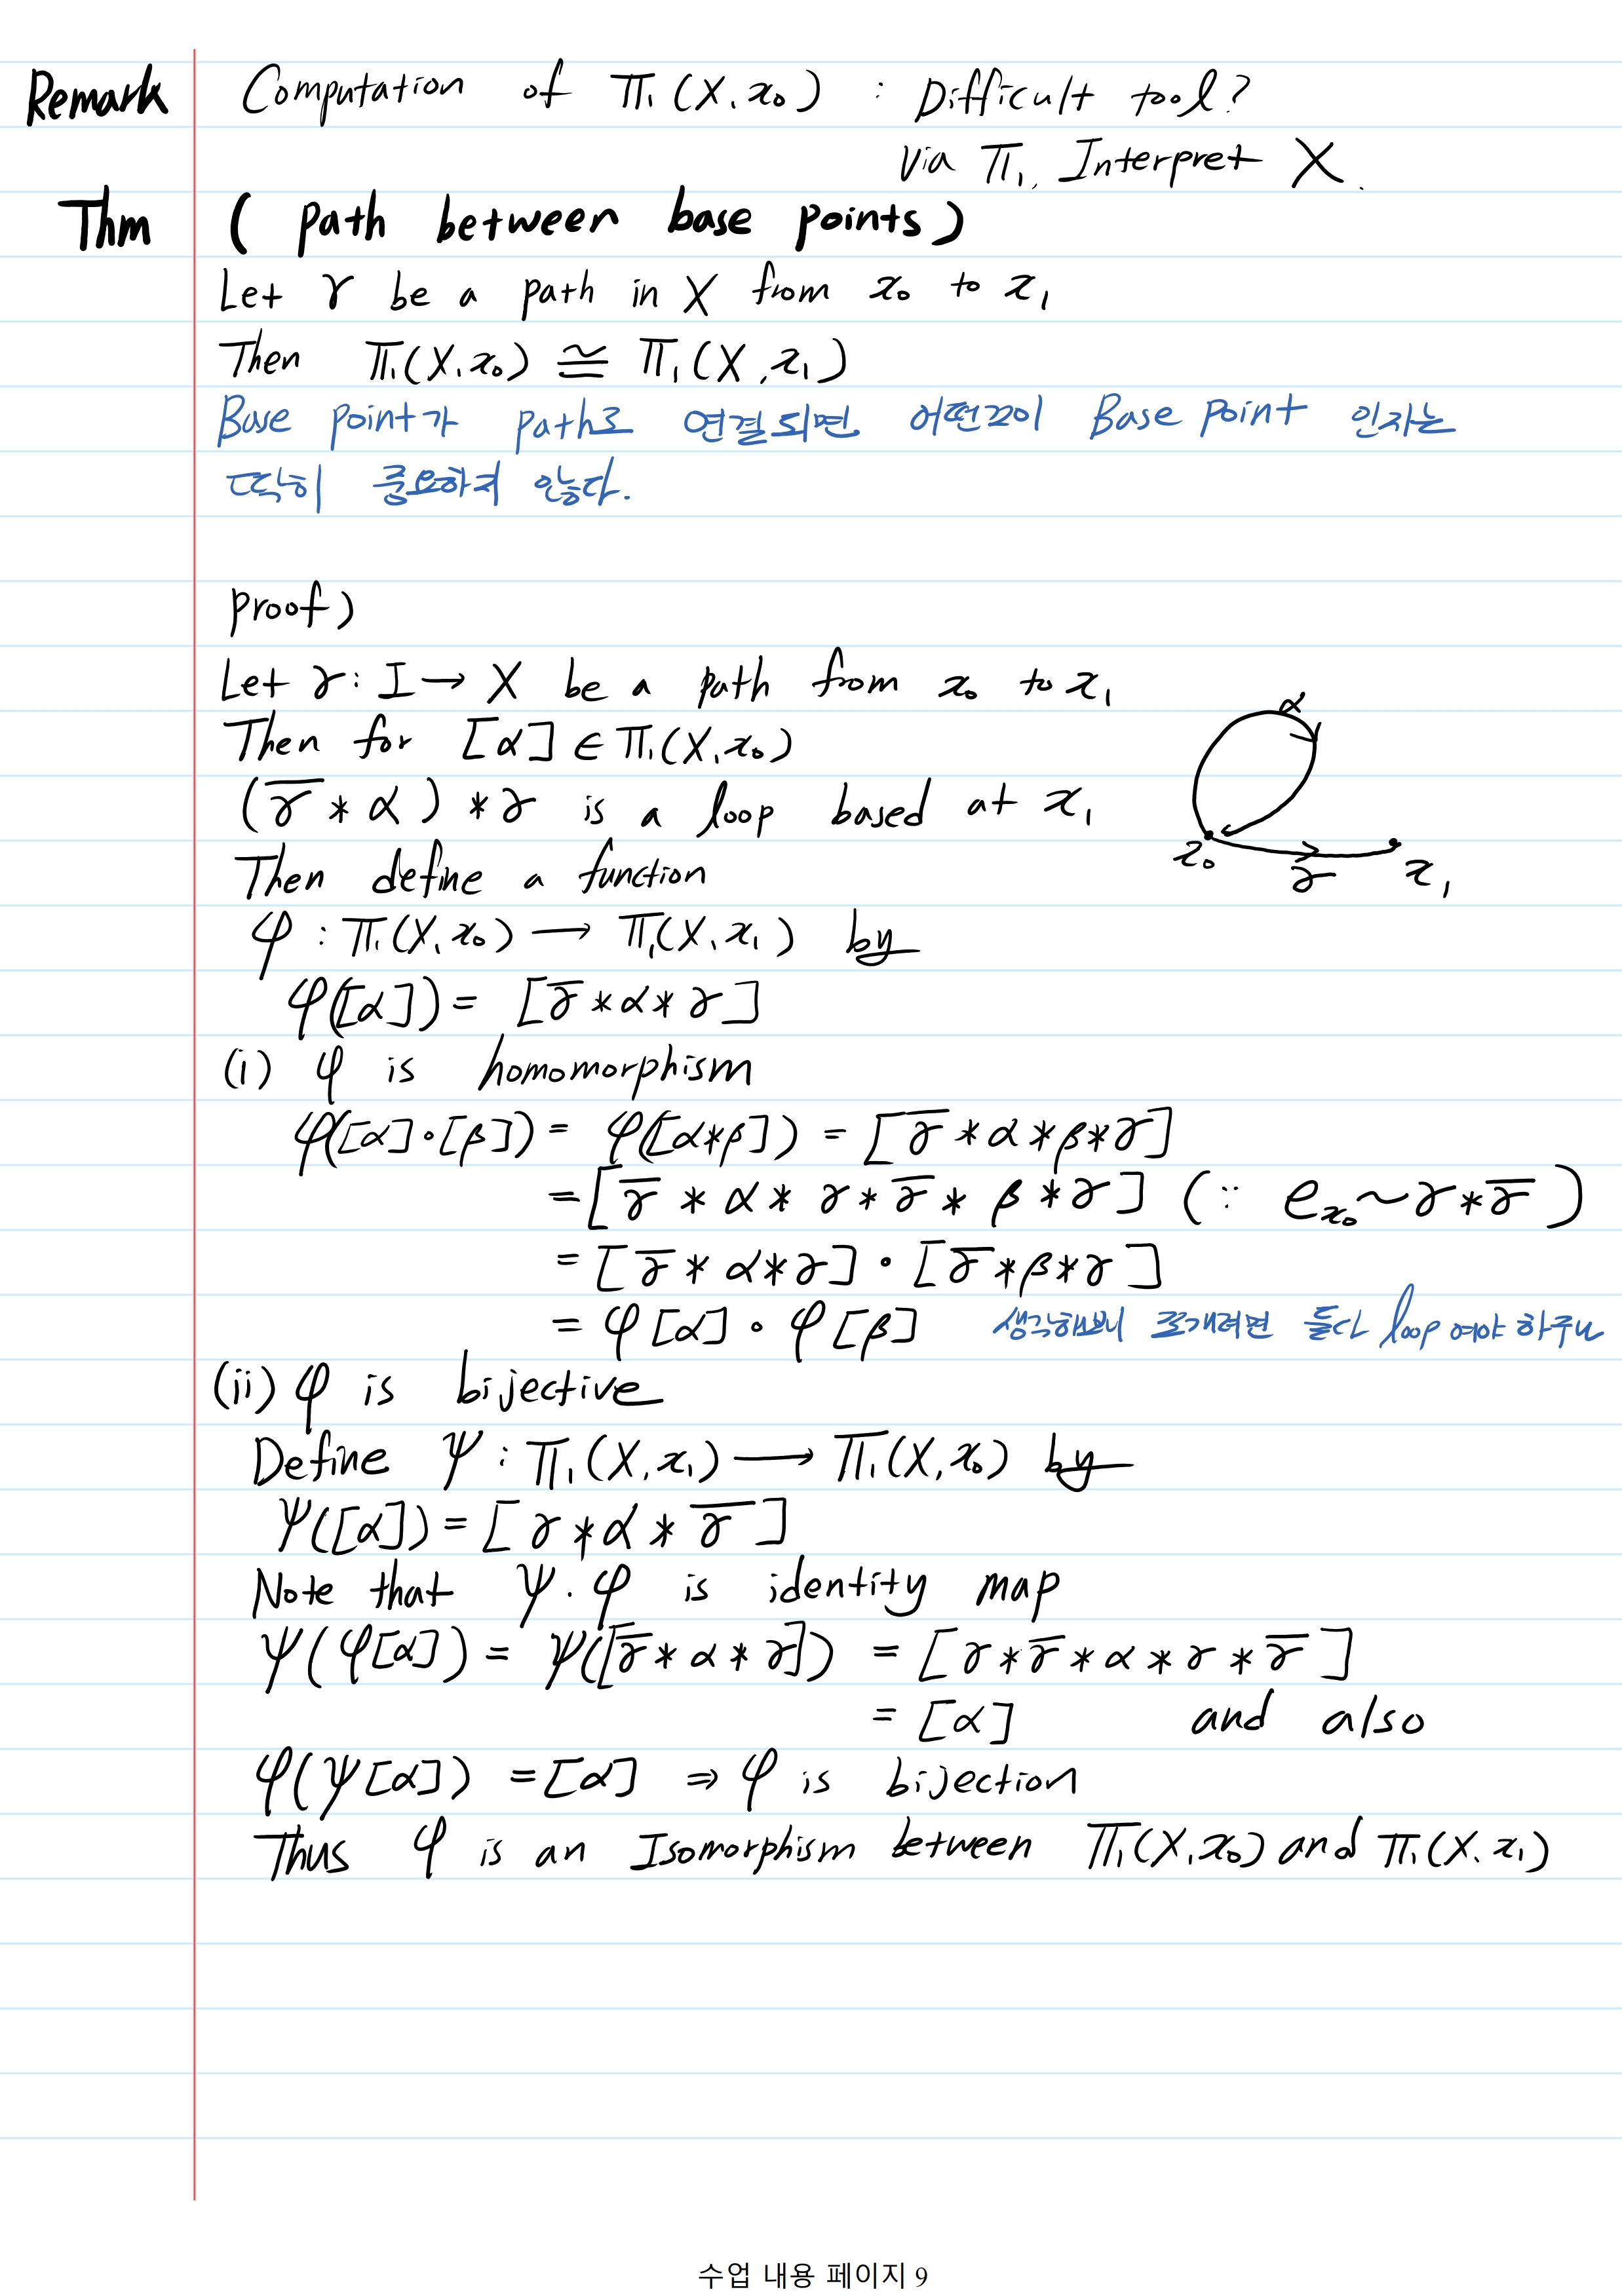 Remark Computation of π₁(X, x₀) : Difficult tool?
via π₁, Interpret X.
Thm (path between base points)
Let γ be a path in X from x₀ to x₁
Then π₁(X, x₀) ≅ π₁(X, x₁)
Base point가 path로 연결되면 어떤 Base point 인지는
딱히 중요하지 않다.
proof)
Let γ : I → X be a path from x₀ to x₁
Then for [α] ∈ π₁(X, x₀)
(γ̅ * α) * γ is a loop based at x₁
α
x₀ γ x₁
Then define a function
φ : π₁(X, x₀) → π₁(X, x₁) by
φ([α]) = [γ̅ * α * γ]
(i) φ is homomorphism
φ([α]∘[β]) = φ([α*β]) = [γ̅ * α * β * γ]
= [γ̅ * α * γ * γ̅ * β * γ] (∵ e_x₀ ~ γ * γ̅)
= [γ̅ * α * γ] ∘ [γ̅ * β * γ]
= φ[α] ∘ φ[β] 생각해보니 쪼개려면 둘다 loop여야 하구나
(ii) φ is bijective
Define ψ : π₁(X, x₁) → π₁(X, x₀) by
ψ([α]) = [γ * α * γ̅]
Note that ψ·φ is identity map
ψ(φ[α]) = ψ([γ̅ * α * γ]) = [γ * γ̅ * α * γ * γ̅]
= [α] and also
φ(ψ[α]) = [α] ⇒ φ is bijection
Thus φ is an Isomorphism between π₁(X, x₀) and π₁(X, x₁)
수업 내용 페이지 9